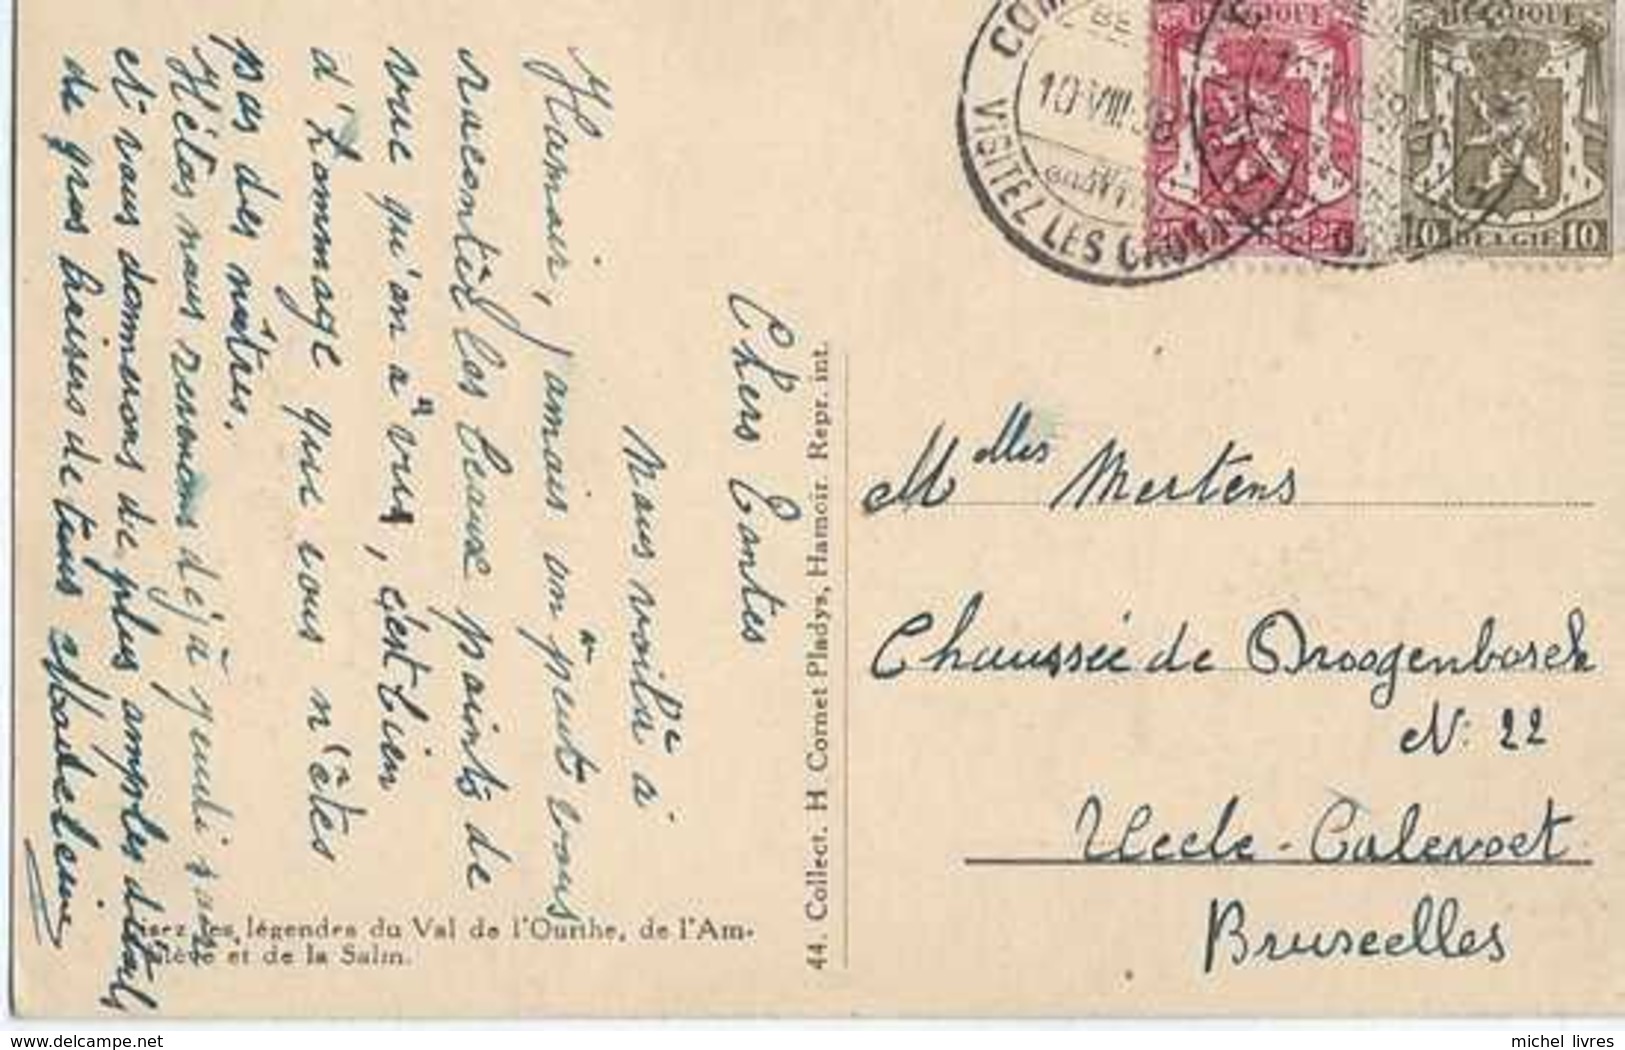 Chers Tantes
Nous voilà à
Hamoir, jamais on peut vous
raconter les beaux points de
vue qu'on a vus, c'est bien
d'hommage que vous n'êtes
pas des nôtres.
Hélas nous revenons déjà jeudi
et vous donnerons de plus amples détails
de gros baisers de tous Madeleine
Lisez les légendes du Val de l'Ourthe, de l'Am-
blève et de la Salm.
44. Collect. H Cornet Pladys, Hamoir. Repr. int.
VISITEZ LES
10 VIII 38
BELGIQUE
BELGIQUE
10 BELGIE 10
Melles Mertens
Chaussée de Droogenbosch
N: 22
Uccle-Calevoet
Bruxelles
delcampe.net
michel_livres